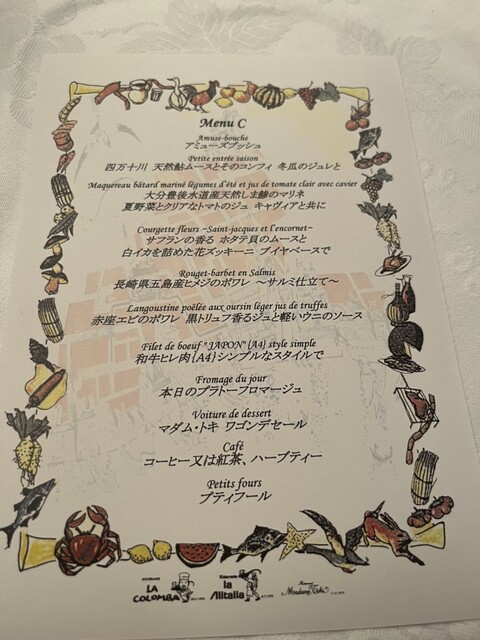 Menu C
Amuse-bouche
アミューズブッシュ
Petite entrée saison
四万十川 天然鮎ムースとそのコンフィ 冬瓜のジュレと
Maquereau bâtard mariné légumes d'été et jus de tomate clair avec cavier
大分豊後水道産天然しま鯵のマリネ
夏野菜とクリアなトマトのジュ キャヴィアと共に
Courgette fleurs ~Saint-jacques et l'encornet~
サフランの香る ホタテ貝のムースと
白イカを詰めた花ズッキーニ ブイヤベースで
Rouget-barbet en Salmis
長崎県五島産ヒメジのポワレ ～サルミ仕立て～
Langoustine poêlée aux oursin léger jus de truffes
赤座エビのポワレ 黒トリュフ香るジュと軽いウニのソース
Filet de boeuf "JAPON"(A4) style simple
和牛ヒレ肉{A4}シンプルなスタイルで
Fromage du jour
本日のプラトーフロマージュ
Voiture de dessert
マダム・トキ ワゴンデセール
Café
コーヒー又は紅茶、ハーブティー
Petits fours
プティフール
LA COLOMBA
la Alitalia
Madame Toki